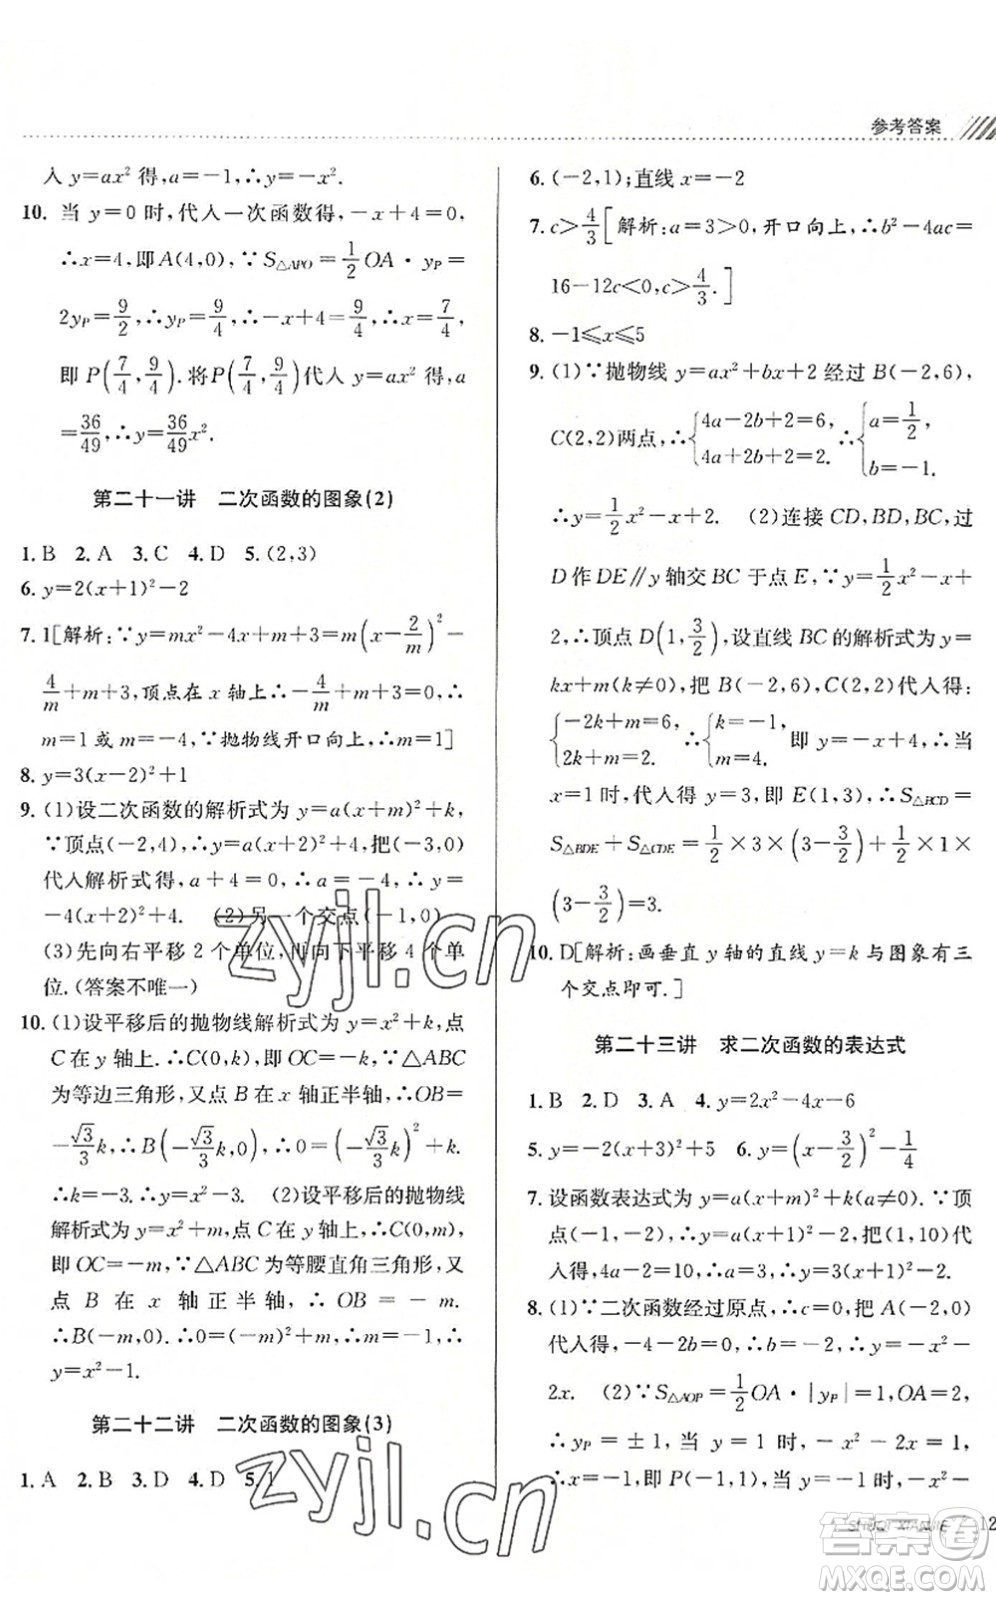 参考答案
入 y=ax² 得,a=-1,∴y=-x².
10. 当 y=0 时,代入一次函数得,-x+4=0,
∴x=4,即A(4,0),∵S△APO=1/2 OA·yP=
2yP=9/2,∴yP=9/4,∴-x+4=9/4,∴x=7/4,
即 P(7/4,9/4).将P(7/4,9/4)代入 y=ax² 得,a
=36/49,∴y=36/49 x².
第二十一讲 二次函数的图象(2)
1. B 2. A 3. C 4. D 5. (2,3)
6. y=2(x+1)²-2
7. 1[解析:∵y=mx²-4x+m+3=m(x-2/m)²-
4/m+m+3,顶点在 x 轴上∴-4/m+m+3=0,∴
m=1或m=-4,∵抛物线开口向上,∴m=1]
8. y=3(x-2)²+1
9. (1)设二次函数的解析式为 y=a(x+m)²+k,
∵顶点(-2,4),∴y=a(x+2)²+4,把(-3,0)
代入解析式得,a+4=0,∴a=-4,∴y=
-4(x+2)²+4. (2)另一个交点(-1,0)
(3)先向右平移 2 个单位,再向下平移 4 个单
位.(答案不唯一)
10. (1)设平移后的抛物线解析式为 y=x²+k,点
C在 y 轴上.∴C(0,k),即OC=-k,∵△ABC
为等边三角形,又点 B 在 x 轴正半轴,∴OB=
-√3/3 k,∴B(-√3/3 k,0),∴0=(-√3/3 k)²+k.
∴k=-3.∴y=x²-3. (2)设平移后的抛物线
解析式为 y=x²+m,点 C 在 y 轴上,∴C(0,m),
即OC=-m,∵△ABC为等腰直角三角形,又
点 B 在 x 轴正半轴,∴OB=-m.
∴B(-m,0).∴0=(-m)²+m,∴m=-1,∴
y=x²-1.
第二十二讲 二次函数的图象(3)
1. A 2. B 3. D 4. D 5. 1
6. (-2,1);直线 x=-2
7. c>4/3[解析:a=3>0,开口向上,∴b²-4ac=
16-12c<0,c>4/3.]
8. -1≤x≤5
9. (1)∵抛物线 y=ax²+bx+2 经过 B(-2,6),
C(2,2)两点,∴{4a-2b+2=6, 4a+2b+2=2. ∴{a=1/2, b=-1.
∴y=1/2 x²-x+2. (2)连接 CD,BD,BC,过
D 作 DE∥y 轴交 BC 于点 E,∵y=1/2 x²-x+
2,∴顶点 D(1,3/2),设直线 BC的解析式为 y=
kx+m(k≠0),把 B(-2,6),C(2,2)代入得:
{-2k+m=6, 2k+m=2. ∴{k=-1, m=4. 即 y=-x+4,∴当
x=1时,代入得 y=3,即 E(1,3),∴S△BCD=
S△BDE+S△CDE=1/2×3×(3-3/2)+1/2×1×
(3-3/2)=3.
10. D[解析:画垂直 y 轴的直线 y=k 与图象有三
个交点即可.]
第二十三讲 求二次函数的表达式
1. B 2. D 3. A 4. y=2x²-4x-6
5. y=-2(x+3)²+5 6. y=(x-3/2)²-1/4
7. 设函数表达式为 y=a(x+m)²+k(a≠0).∵顶
点(-1,-2),∴y=a(x+1)²-2,把(1,10)代
入得,4a-2=10,∴a=3,∴y=3(x+1)²-2.
8. (1)∵二次函数经过原点,∴c=0,把 A(-2,0)
代入得,-4-2b=0,∴b=-2,∴y=-x²-
2x. (2)∵S△AOP=1/2 OA·|yP|=1,OA=2,
∴yP=±1,当 y=1 时,-x²-2x=1,
∴x=-1,即 P(-1,1),当 y=-1 时,-x²-
SHUQI XIANJIE
12
zyjl.cn
zyjl.cn
答案圈
MXQE.COM